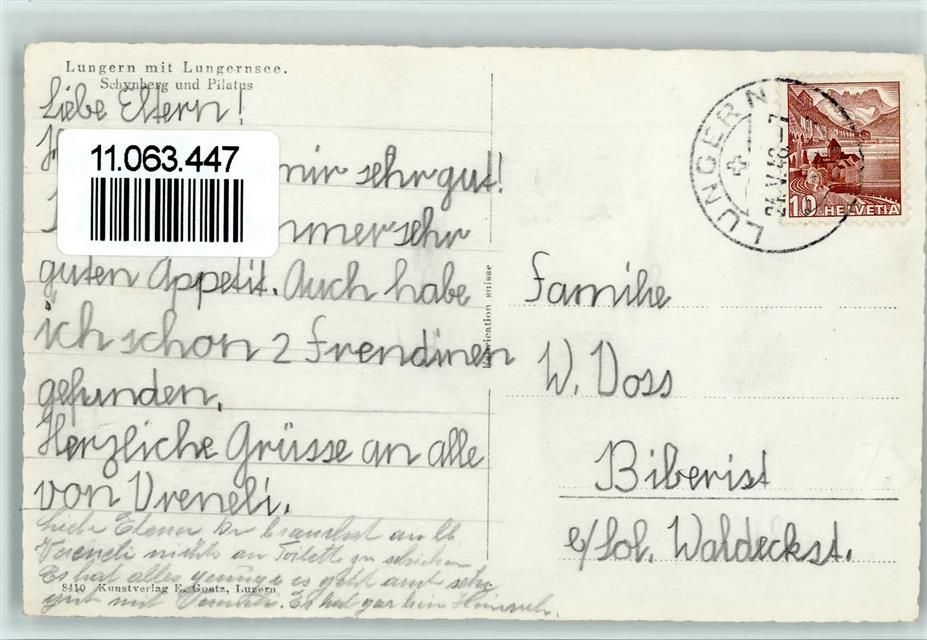 Lungern mit Lungernsee.
Schynberg und Pilatus
Liebe Eltern!
11.063.447
mir sehr gut!
immer sehr
guten Appetit. Auch habe
ich schon 2 Frendinen
gefunden.
Herzliche Grüsse an alle
von Vreneli.
Liebe Eltern Ihr braucht an lb
Vreneli nichts an Toilette zu schicken
Es hat alles genüge es geht auch sehr
gut mit Vreneli. Es hat gar kein Heimweh.
8410 Kunstverlag E. Goetz, Luzern
Fabrication suisse
LUNGERN
10 HELVETIA
Familie
W. Voss
Biberist
b/Sol. Waldeckst.